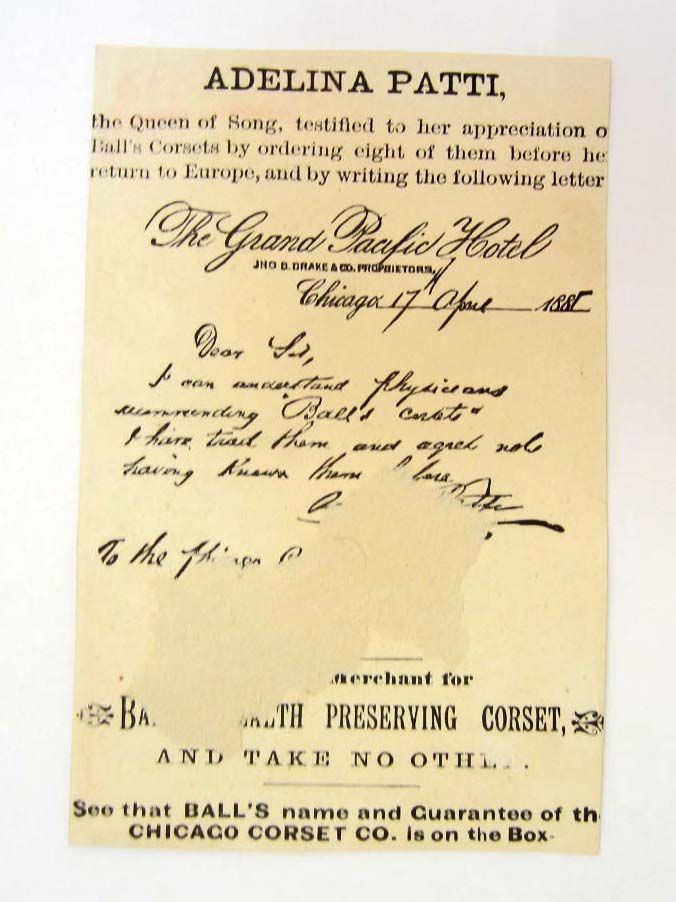 ADELINA PATTI,
the Queen of Song, testified to her appreciation o
Ball's Corsets by ordering eight of them before he
return to Europe, and by writing the following letter
The Grand Pacific Hotel
JNO B. DRAKE & CO. PROPRIETORS,
Chicago 17 April 1885
Dear Sir,
I can understand physicians
recommending "Ball's corsets"
I have tried them and agree not
having known them
To the
Merchant for
PRESERVING CORSET,
AND TAKE NO
See that BALL'S name and Guarantee of th
CHICAGO CORSET CO. is on the Box-